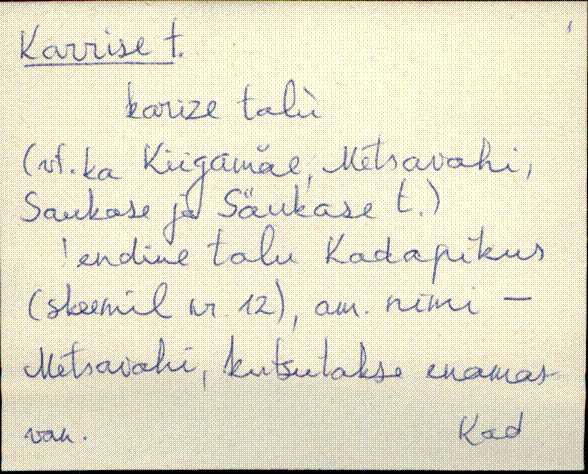 Karrise t.
karize talù
(vt. ka Kiigamäe, Metsavahi,
Saukase ja Säukase t.)
! endine talu Kadapikus
(skeemil nr. 12), am. nimi —
Metsavahi, kutsutakse enamas-
van. Kad